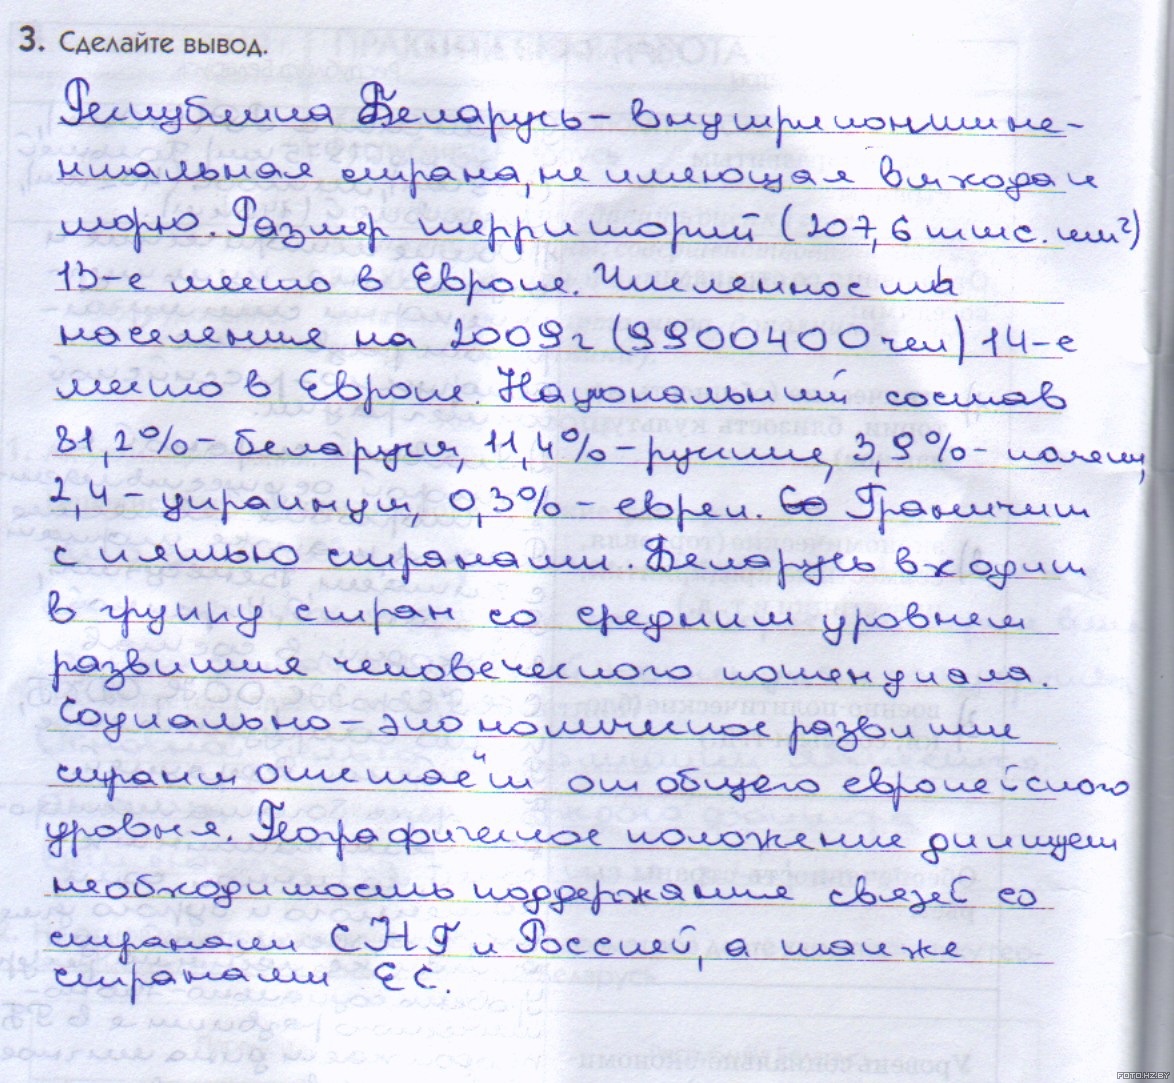 3. Сделайте вывод.
Республика Беларусь – внутриконтине-
нтальная страна, не имеющая выхода к
морю. Размер территорий (207,6 тыс. км²)
13-е место в Европе. Численность
население на 2009 г (9900400 чел) 14-е
место в Европе. Национальный состав
81,2% – беларусы, 11,4% – русские, 3,9% – поляки,
2,4 – украинцы, 0,3% – евреи. Граничит
с пятью странами. Беларусь входит
в группу стран со средним уровнем
развития человеческого потенциала.
Социально – экономическое развитие
страны отстаёт от общего европейского
уровня. Географическое положение диктует
необходимость поддержание связей со
странами СНГ и Россией, а также
странами ЕС.
FOTO.HZ.BY